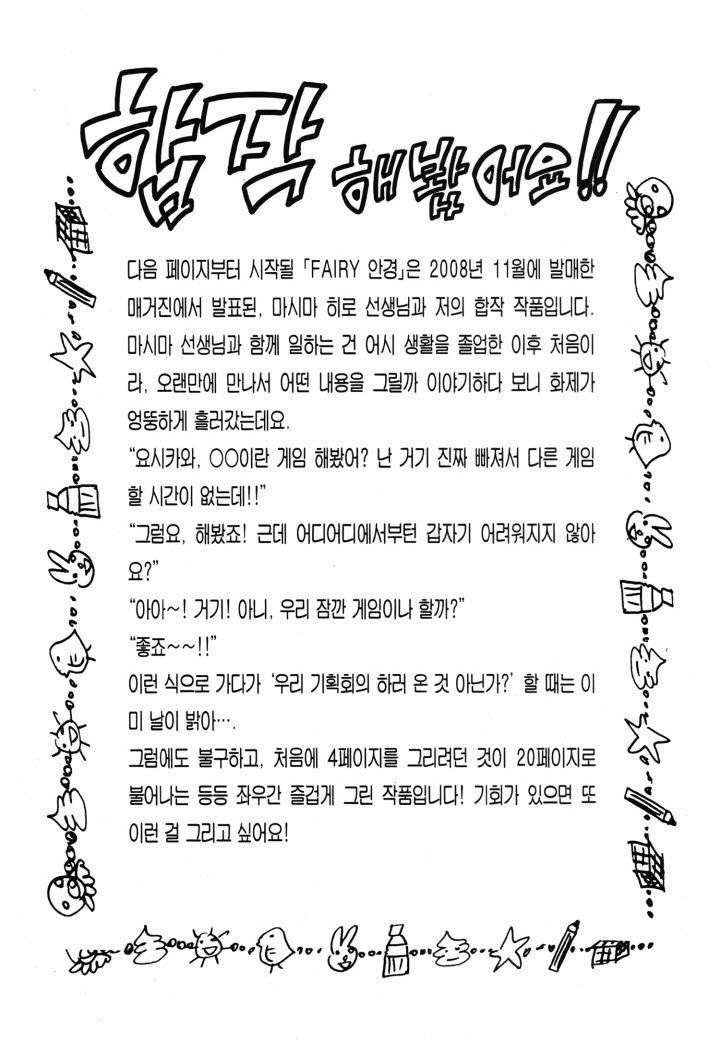 합작 해봤어요!!
다음 페이지부터 시작될 「FAIRY 안경」은 2008년 11월에 발매한
매거진에서 발표된, 마시마 히로 선생님과 저의 합작 작품입니다.
마시마 선생님과 함께 일하는 건 어시 생활을 졸업한 이후 처음이
라, 오랜만에 만나서 어떤 내용을 그릴까 이야기하다 보니 화제가
엉뚱하게 흘러갔는데요.
“요시카와, ○○이란 게임 해봤어? 난 거기 진짜 빠져서 다른 게임
할 시간이 없는데!!”
“그럼요, 해봤죠! 근데 어디어디에서부턴 갑자기 어려워지지 않아
요?”
“아아~! 거기! 아니, 우리 잠깐 게임이나 할까?”
“좋죠~~!!”
이런 식으로 가다가 ‘우리 기획회의 하러 온 것 아닌가?’ 할 때는 이
미 날이 밝아….
그럼에도 불구하고, 처음에 4페이지를 그리려던 것이 20페이지로
불어나는 등등 좌우간 즐겁게 그린 작품입니다! 기회가 있으면 또
이런 걸 그리고 싶어요!